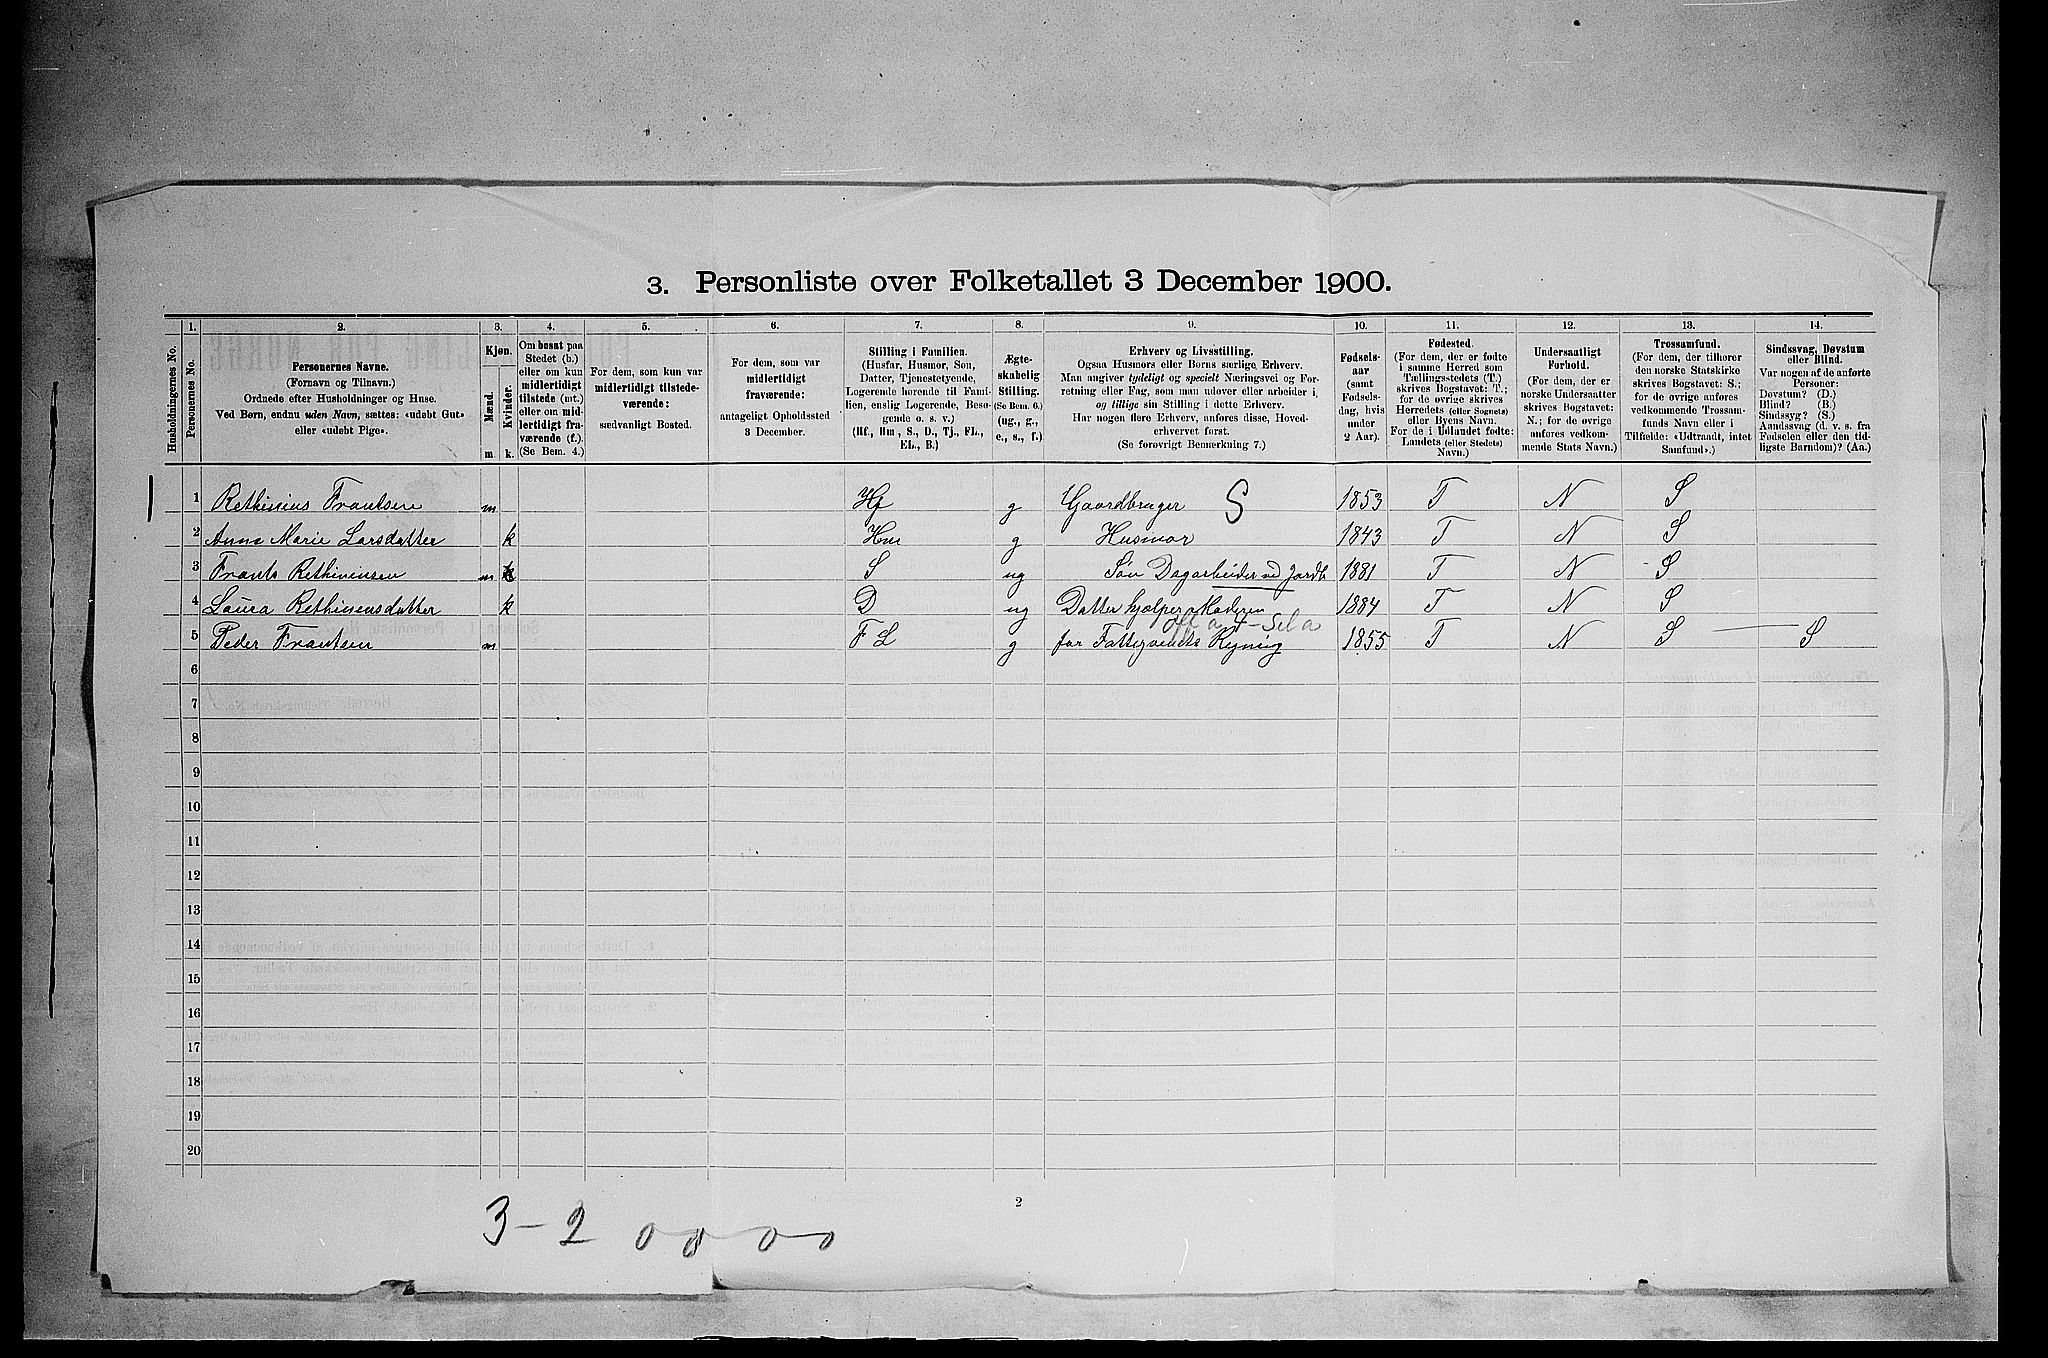 3. Personliste over Folketallet 3 December 1900.
Husholdningernes No.
1.
Personernes No.
2.
Personernes Navne.
(Fornavn og Tilnavn.)
Ordnede efter Husholdninger og Huse.
Ved Børn, endnu uden Navn, sættes: «udøbt Gut»
eller «udøbt Pige».
3.
Kjøn.
Mænd.
Kvinder.
m
k.
4.
Om bosat paa
Stedet (b.)
eller om kun
midlertidigt
tilstede (mt.)
eller om mid-
lertidigt fra-
værende (f.).
(Se Bem. 4.)
5.
For dem, som kun var
midlertidigt tilstede-
værende:
sædvanligt Bosted.
6.
For dem, som var
midlertidigt
fraværende:
antageligt Opholdssted
3 December.
7.
Stilling i Familien.
(Husfar, Husmor, Søn,
Datter, Tjenestetyende,
Logerende hørende til Fami-
lien, enslig Logerende, Besø-
gende o. s. v.)
(Hf., Hm., S., D., Tj., FL.,
EL., B.)
8.
Ægte-
skabelig
Stilling.
(Se Bem. 6.)
(ug., g.,
e., s., f.)
9.
Erhverv og Livsstilling.
Ogsaa Husmors eller Børns særlige Erhverv.
Man angiver tydeligt og specielt Næringsvei og For-
retning eller Fag, som man udøver eller arbeider i,
og tillige sin Stilling i dette Erhverv.
Har nogen flere Erhverv, anføres disse, Hoved-
erhvervet først.
(Se forøvrigt Bemerkning 7.)
10.
Fødsels-
aar
(samt
Fødsels-
dag, hvis
under
2 Aar).
11.
Fødested.
(For dem, der er fødte
i samme Herred som
Tællingsstedets (T.)
skrives Bogstavet: T.;
for de øvrige skrives
Herredets (eller Sognets)
eller Byens Navn.
For de i Udlandet fødte:
Landets (eller Stedets)
Navn.)
12.
Undersaatligt
Forhold.
(For dem, der er
norske Undersaatter
skrives Bogstavet:
N.; for de øvrige
anføres vedkom-
mende Stats Navn.)
13.
Trossamfund.
(For dem, der tilhører
den norske Statskirke
skrives Bogstavet: S.;
for de øvrige anføres
vedkommende Trossam-
funds Navn eller i
Tilfælde: «Udtraadt, intet
Samfund».)
14.
Sindssvag, Døvstum
eller Blind.
Var nogen af de anførte
Personer:
Døvstum? (D.)
Blind? (B.)
Sindssyg? (S.)
Aandssvag (d. v. s. fra
Fødselen eller den tid-
ligste Barndom)? (Aa.)
1 Rethinius Frantsen m Hf g Gaardbruger S 1853 T N S
2 Anne Marie Larsdatter k Hm g Husmor 1843 T N S
3 Frants Rethiniusen m S ug Søn Dagarbeider ved Jordb 1881 T N S
4 Laura Rethiniusdatter k D ug Datter hjælper Moderen 1884 T N S
5 Peder Frantsen m F L g for Fattigvæsenets Regning 1855 T N S S
6
7
8
9
10
11
12
13
14
15
16
17
18
19
20
2
3-2 00 00